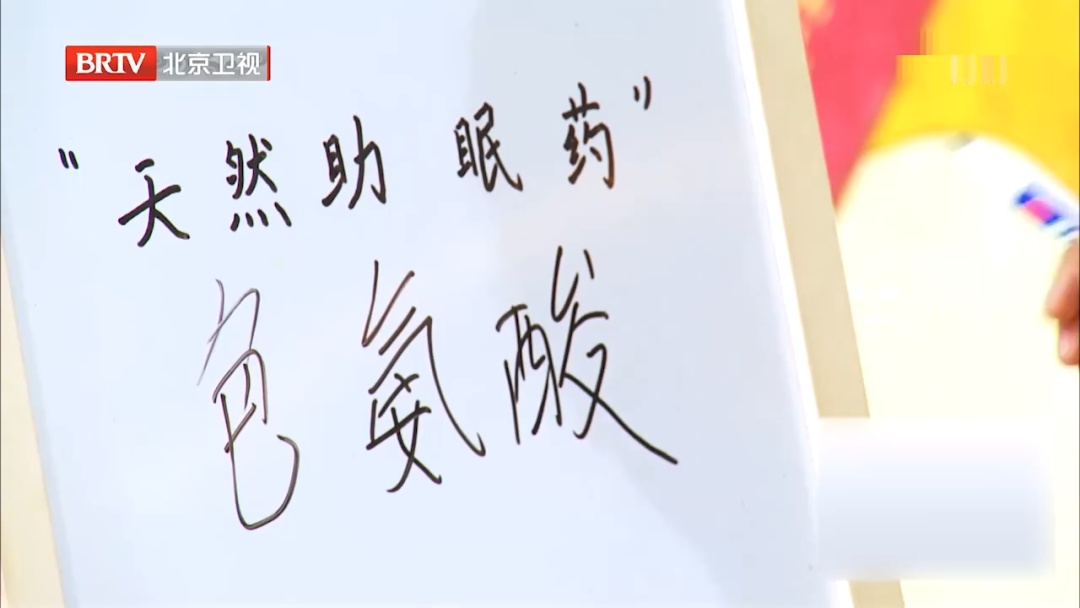 BRTV 北京卫视
"天然助眠药"
色氨酸